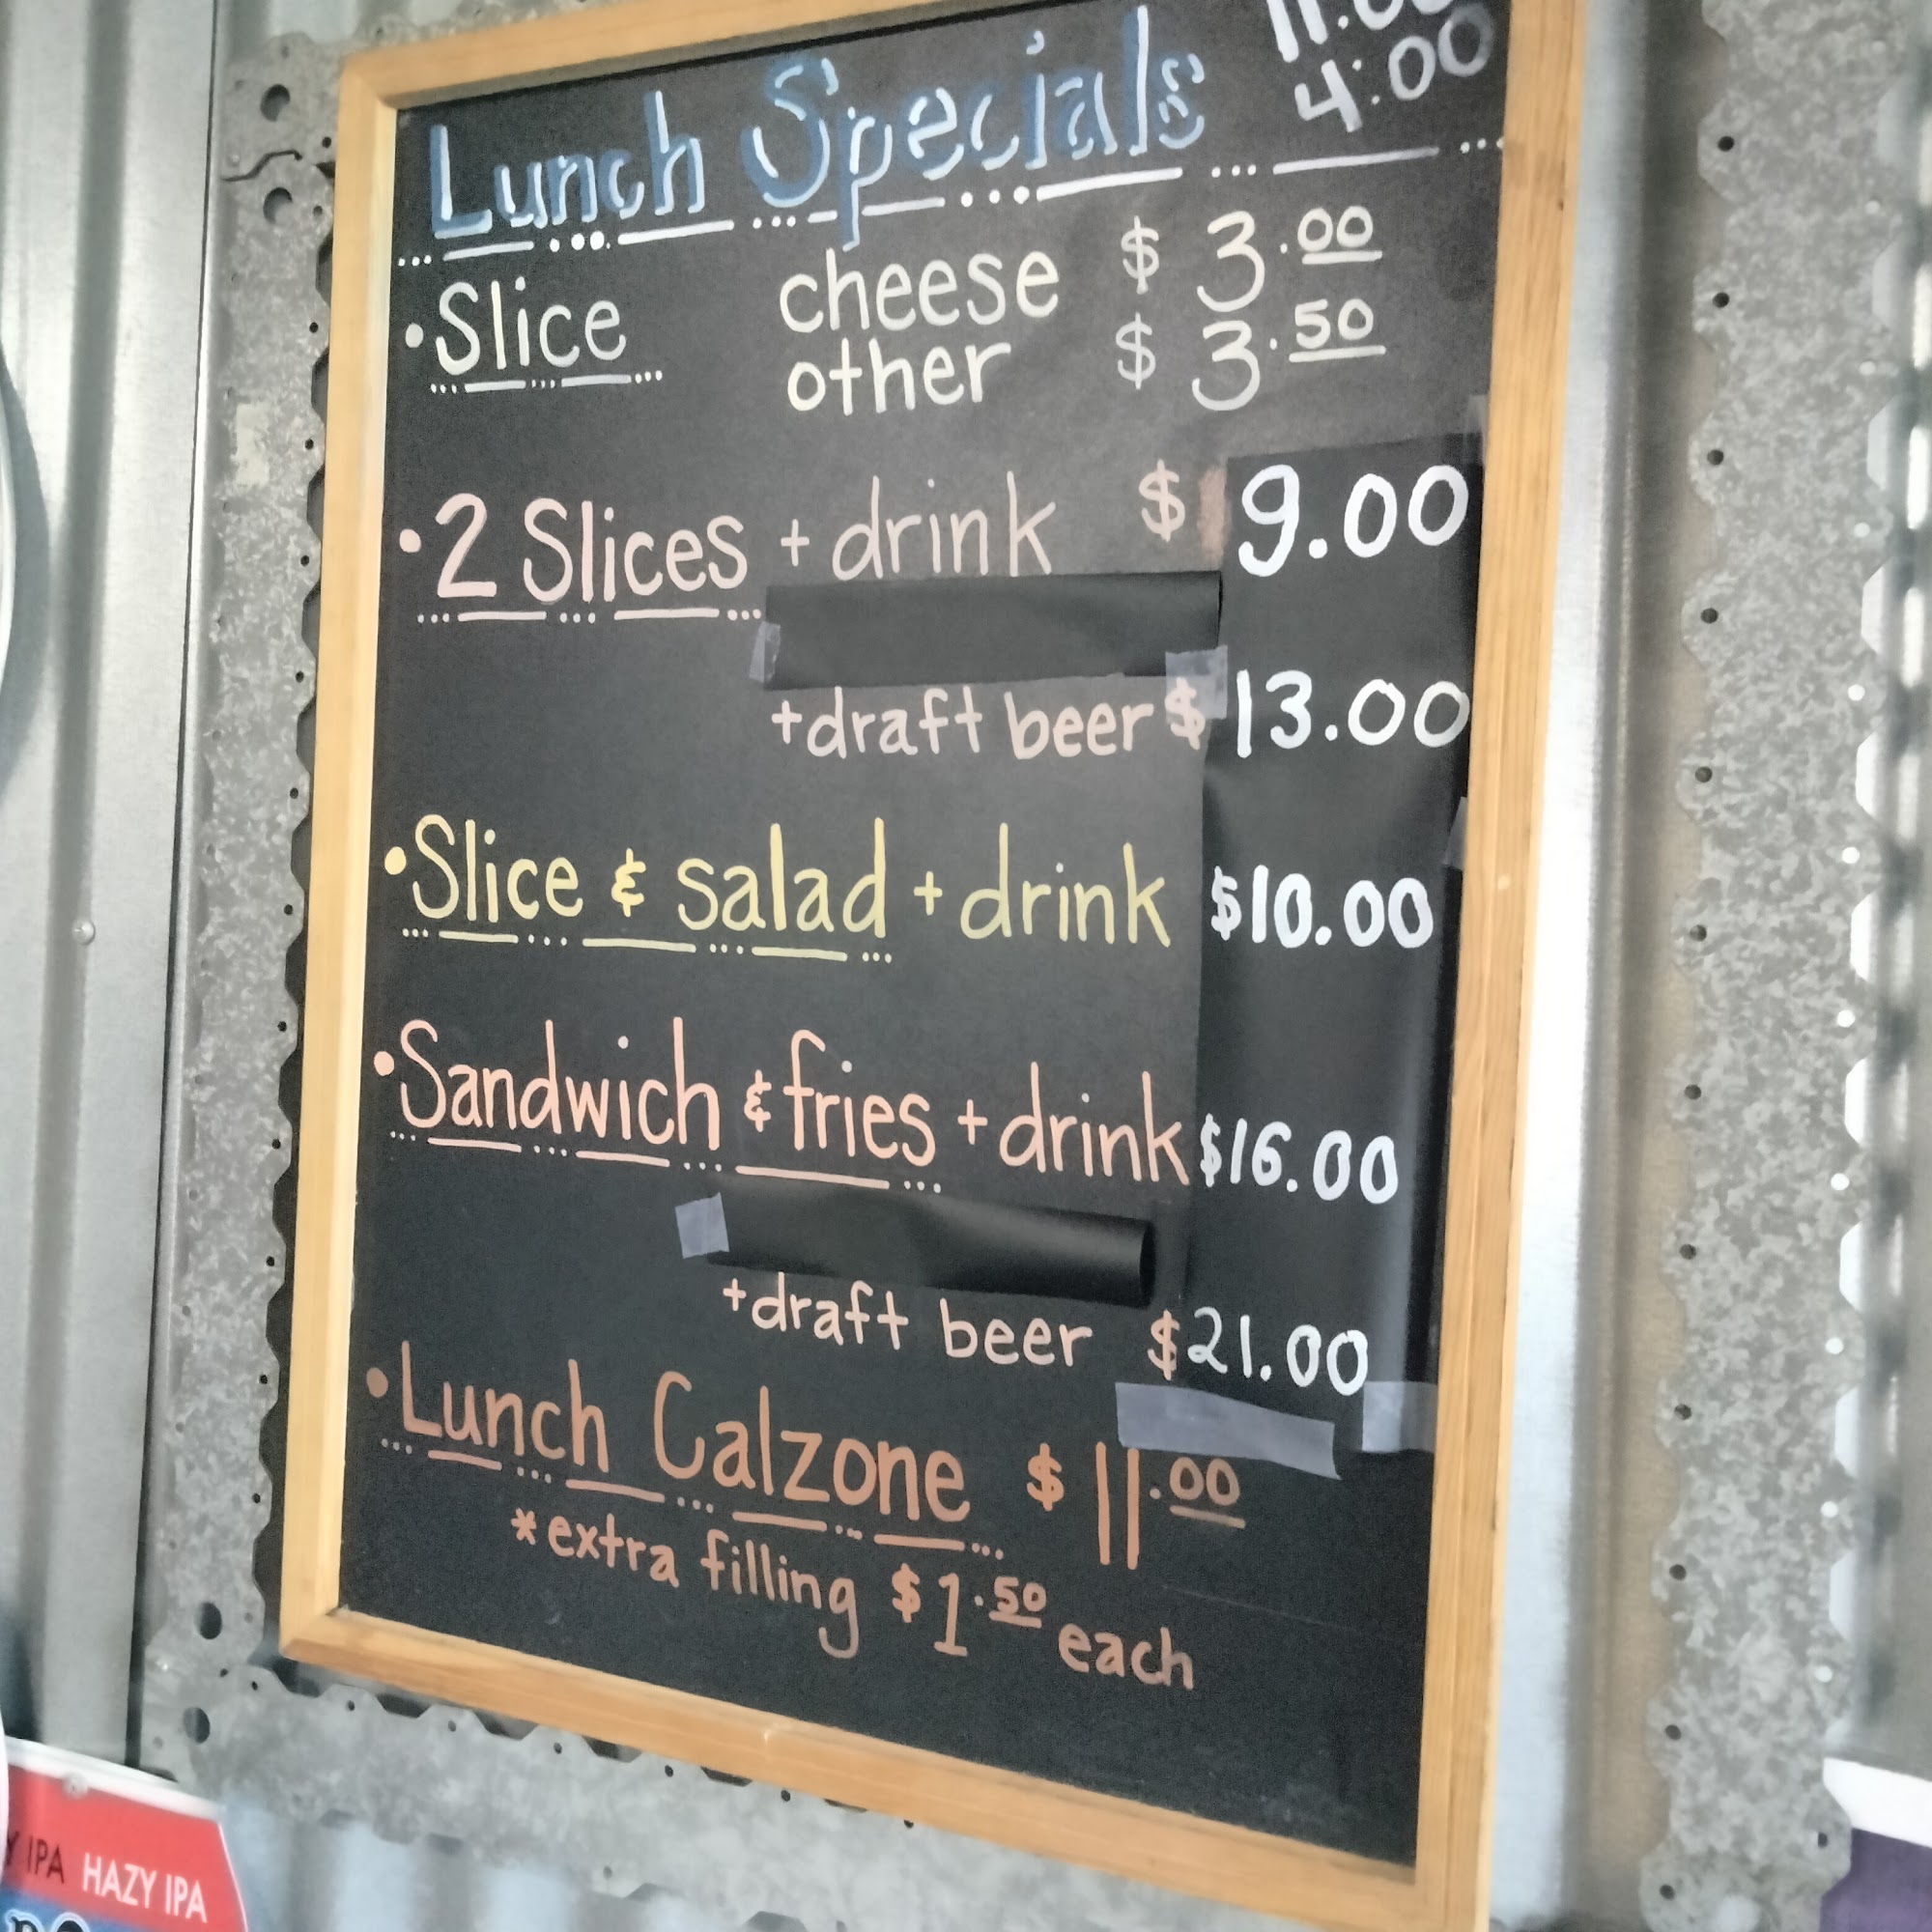 Lunch Specials
4:00
•Slice cheese $3.00
other $3.50
•2 Slices + drink $9.00
+draft beer $13.00
•Slice & salad + drink $10.00
•Sandwich & fries + drink $16.00
+draft beer $21.00
•Lunch Calzone $11.00
*extra filling $1.50 each
IPA HAZY IPA